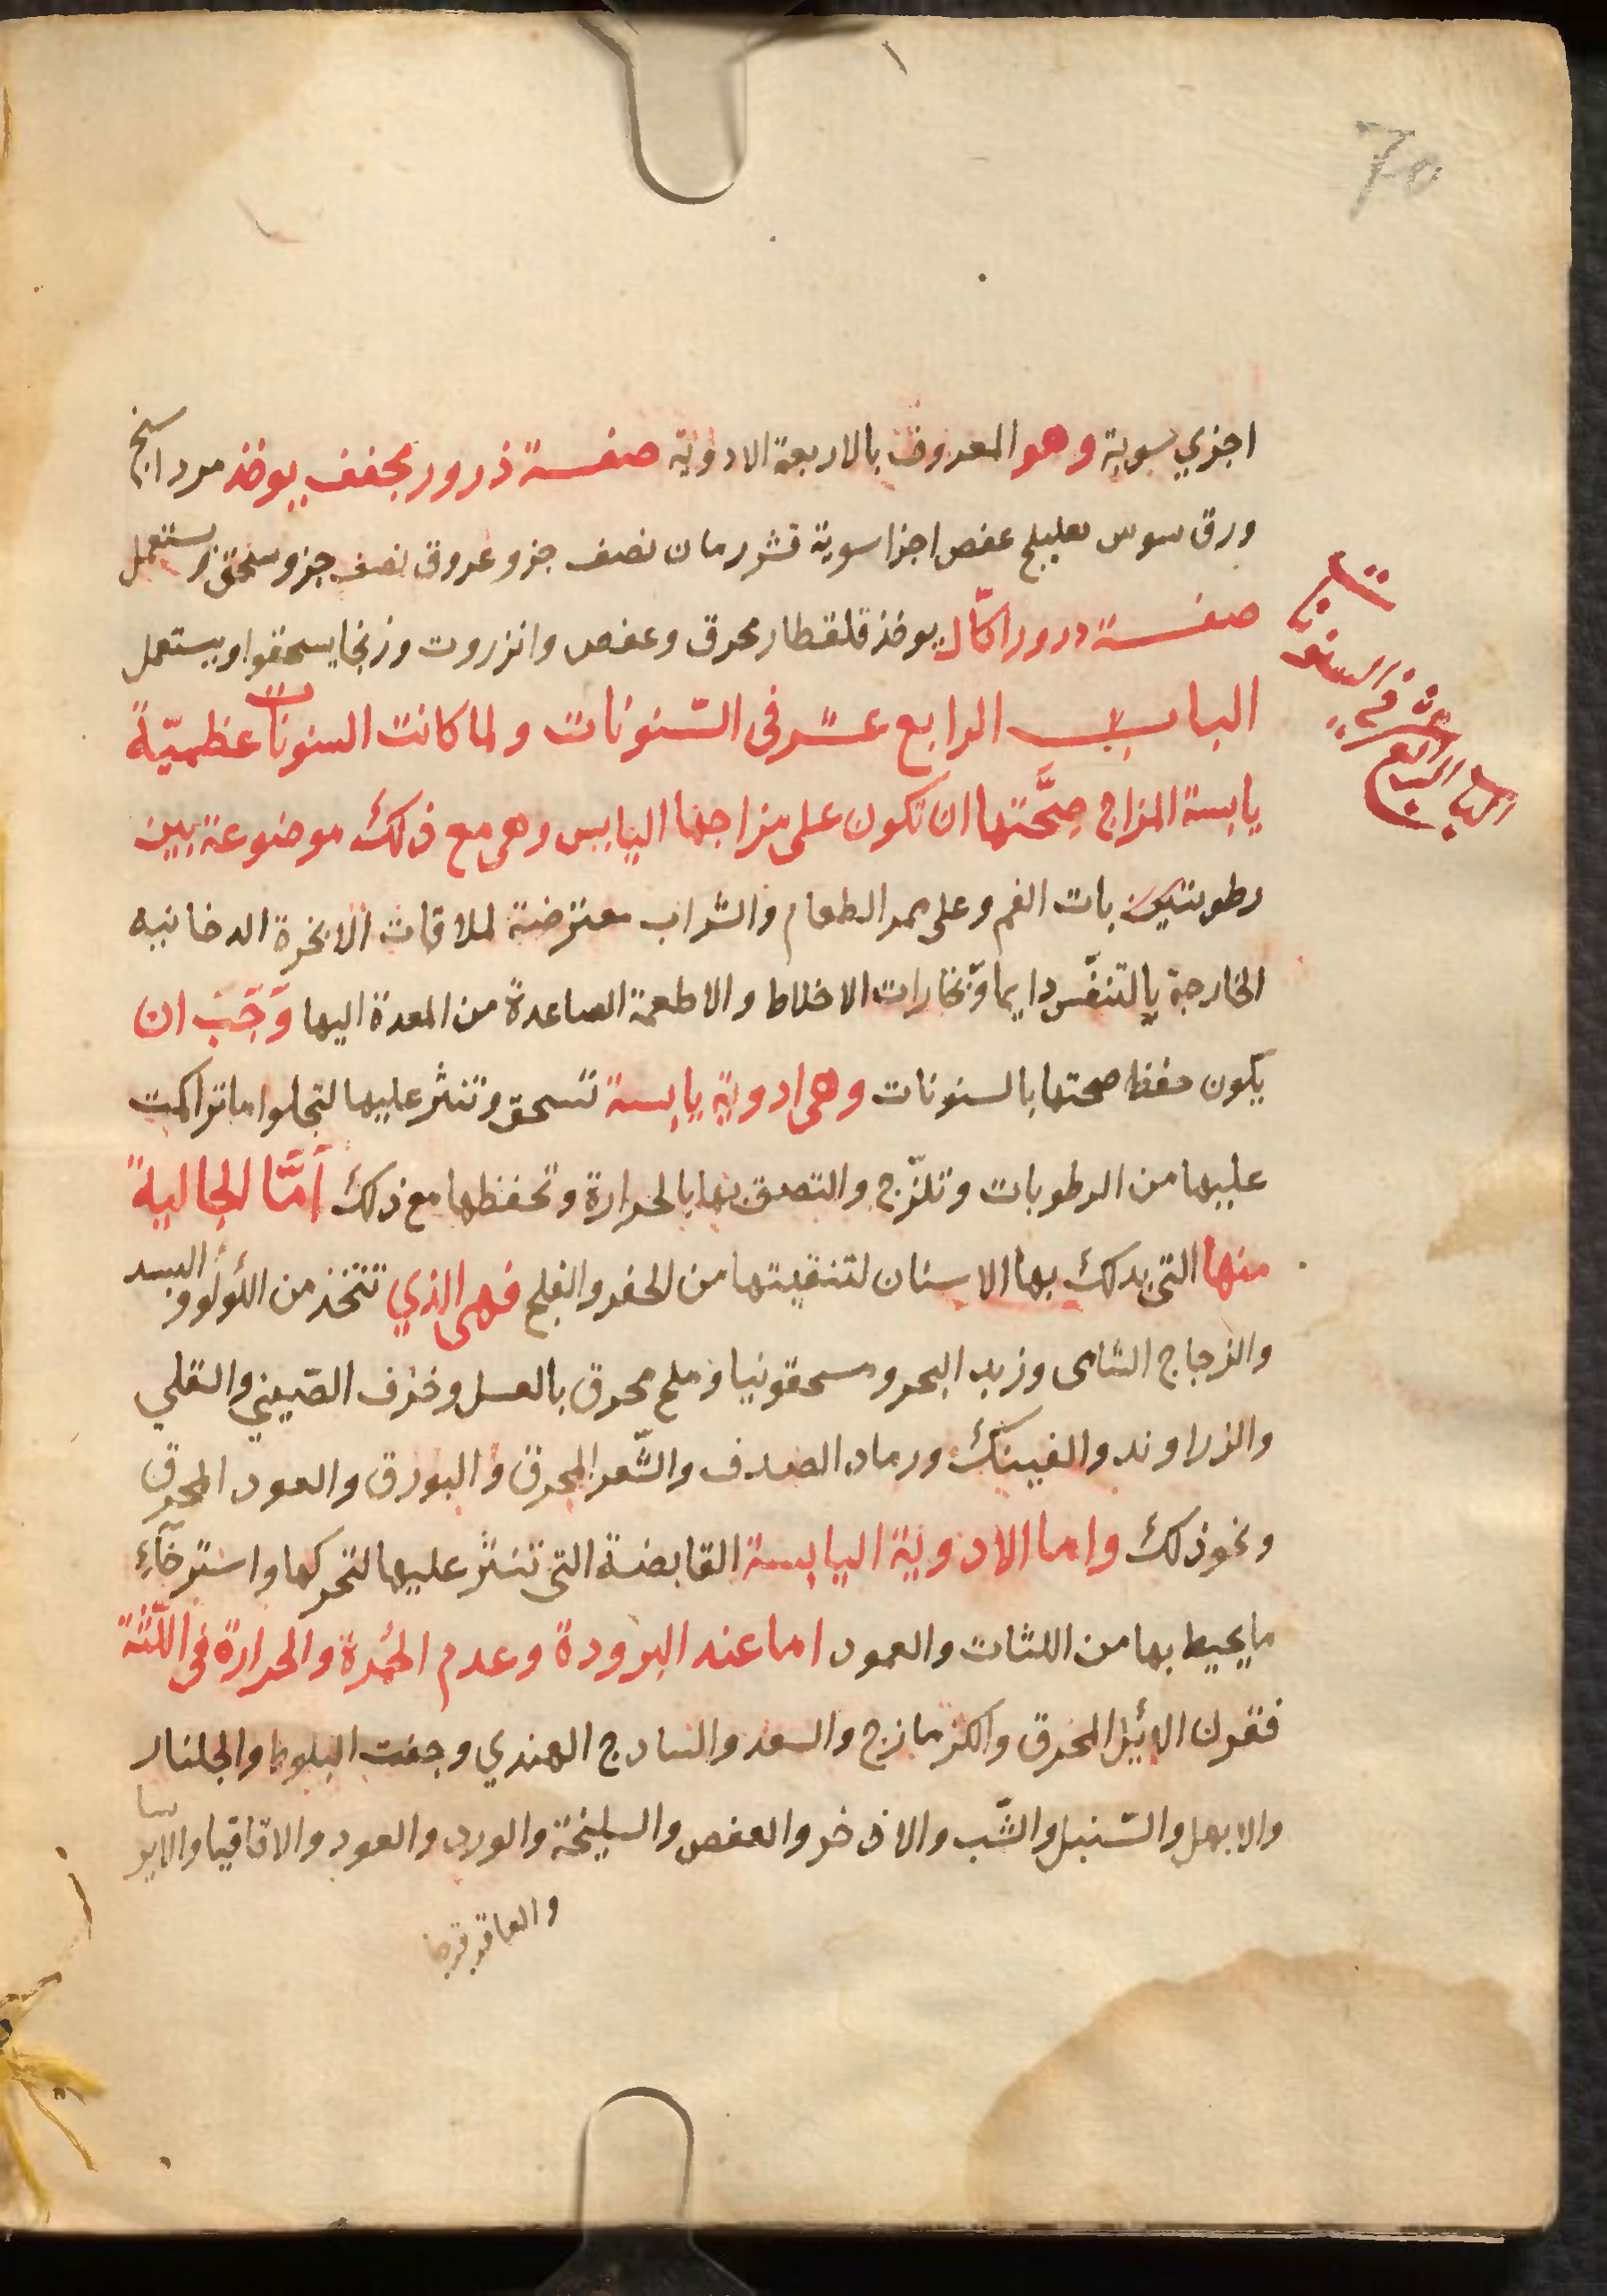 70
اجزي سوية وهو المعروف بالاربعة الادوية صفة ذرور مجفف يوخذ مرداسنج
ورق سوس هليلج عفص اجزا سوية قشر رمان نصف جزو عروق نصف جزو يسحق ويستعمل
صفة درور اكّال يوخذ قلقطار محرق وعفص وانزروت وزنجار يسحقوا ويستعمل
الباب الرابع عشر في السّنونات
الباب الرابع عشر في السّنونات ولما كانت السنونات عظميّة
يابسة المزاج صِحَّتها ان تكون على مزاجها اليابس وهى مع ذلك موضوعة بين
رطوبات الفم وعلى ممر الطعام والشراب معترضة لملاقات الابخرة الدخانيه
الخارجة بالتنفّس دايما وبخارات الاخلاط والاطعمة الصاعدة من المعدة اليها وَجَبَ ان
يكون حفظ صحتها بالسنونات وهى ادوية يابسة تسحق وتنثر عليها لتجلوا ما تراكمت
عليها من الرطوبات وتلزّج والتصق بها بالحرارة وتحفظها مع ذلك أمَّا الجالية
منها التى يدلك بها الاسنان لتنقيتها من الحفر والقلح فهى الذي تتخذ من اللؤلؤ والبسد
والزجاج الشامى وزبد البحر ومسحقونيا وملح محرق بالعسل وخزف الصّيني والقلي
والزراوند والفينك ورماد الصدف والشّعر المحرق والبورق والعود المحرق
ونحو ذلك واما الادوية اليابسة القابضة التى تنثر عليها لتحركها واسترخآء
ما يحيط بها من اللثات والعمود اما عند البرودة وعدم الحُمرة والحرارة فى اللّثة
فقرن الايّل المحرق والكزمازج والسعد والسادج الهندي وجفت البلوط والجلنار
والابهل والسّنبل والشّب والاذخر والعفص والسليخة والورد والعود والاقاقيا والايرسا
والعاقرقرحا